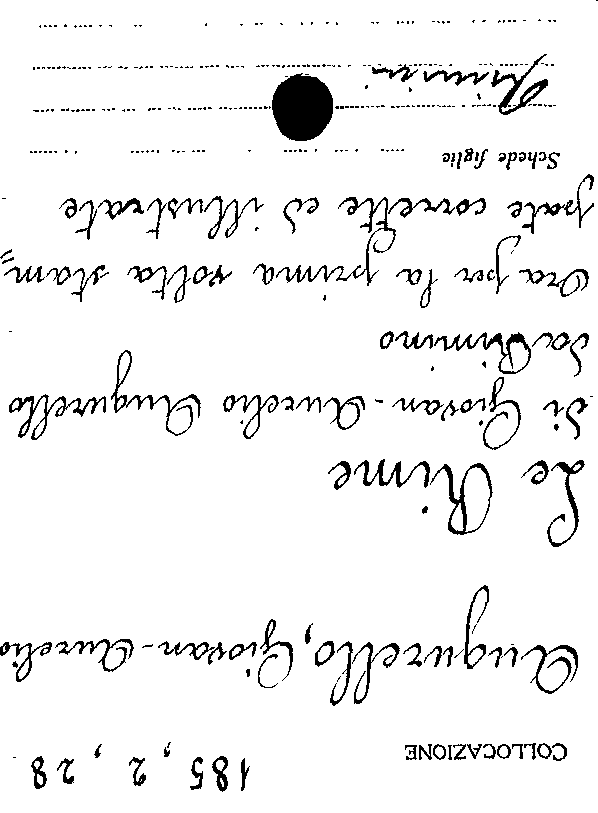 COLLOCAZIONE 185, 2, 28
Augurello, Giovan-Aurelio
Le Rime
di Giovan-Aurelio Augurello
da Rimino
Ora per la prima volta stam=
pate corrette ed illustrate
Schede figlie
Rimini